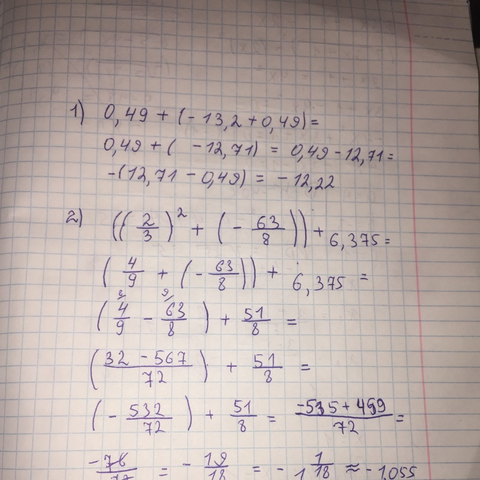 1) 0,49 + (-13,2 + 0,49) =
0,49 + ( -12,71) = 0,49 - 12,71 =
-(12,71 - 0,49) = -12,22
2) ((2/3)^2 + (-63/8)) + 6,375 =
(4/9 + (-63/8)) + 6,375 =
(4/9 - 63/8) + 51/8 =
((32 - 567)/72) + 51/8 =
(-532/72) + 51/8 = (-535 + 459)/72 =
-76/72 = -19/18 = -1 1/18 ≈ -1,055